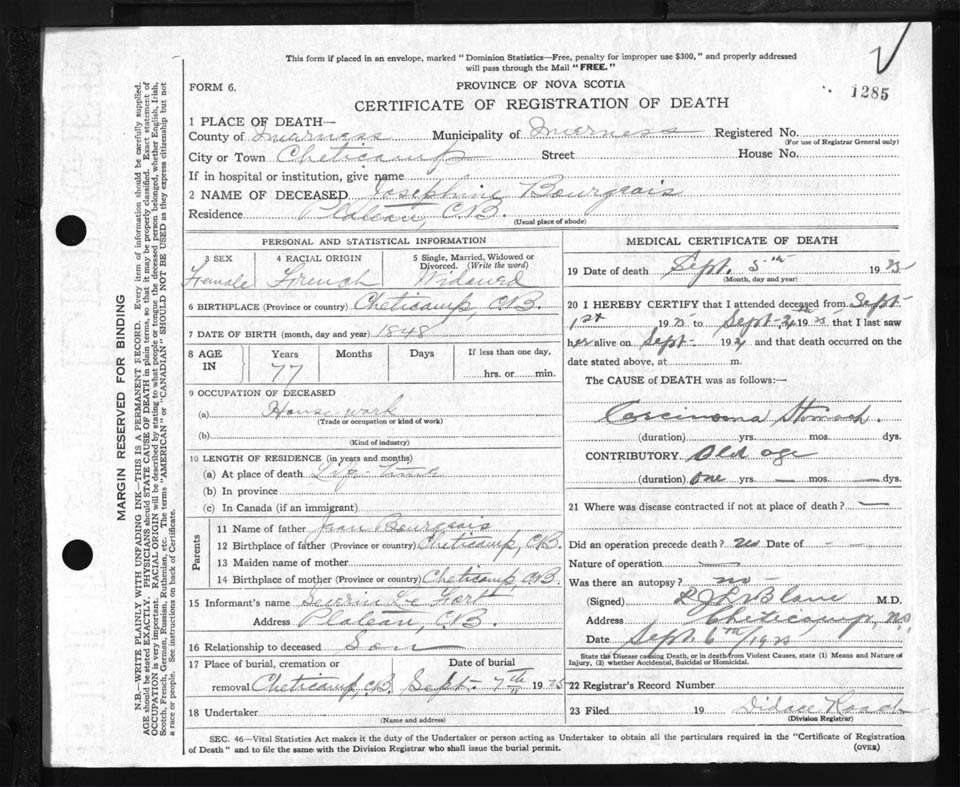 This form if placed in an envelope, marked "Dominion Statistics—Free, penalty for improper use $300," and properly addressed
will pass through the Mail "FREE."
FORM 6.
PROVINCE OF NOVA SCOTIA
1285
CERTIFICATE OF REGISTRATION OF DEATH
1 PLACE OF DEATH—
County of Inverness Municipality of Inverness Registered No.
(For use of Registrar General only)
City or Town Cheticamp Street House No.
If in hospital or institution, give name
2 NAME OF DECEASED Josephine Bourgeois
Residence Plateau, C.B.
(Usual place of abode)
PERSONAL AND STATISTICAL INFORMATION
3 SEX 4 RACIAL ORIGIN 5 Single, Married, Widowed or
Divorced. (Write the word)
Female French Widowed
6 BIRTHPLACE (Province or country) Cheticamp, C.B.
7 DATE OF BIRTH (month, day and year) 1848
8 AGE IN Years Months Days If less than one day,
77 hrs. or min.
9 OCCUPATION OF DECEASED
(a) House work
(Trade or occupation or kind of work)
(b)
(Kind of industry)
10 LENGTH OF RESIDENCE (in years and months)
(a) At place of death Life-time
(b) In province
(c) In Canada (if an immigrant)
Parents
11 Name of father Jean Bourgeois
12 Birthplace of father (Province or country) Cheticamp, C.B.
13 Maiden name of mother
14 Birthplace of mother (Province or country) Cheticamp, C.B.
15 Informant's name Severin Le Fort
Address Plateau, C.B.
16 Relationship to deceased Son
17 Place of burial, cremation or Date of burial
removal Cheticamp, C.B. Sept. 7th 1925
18 Undertaker
(Name and address)
MEDICAL CERTIFICATE OF DEATH
19 Date of death Sept. 5th 1925
(Month, day and year)
20 I HEREBY CERTIFY that I attended deceased from Sept-
1st 1925 to Sept- 1925, that I last saw
her alive on Sept- 192 and that death occurred on the
date stated above, at m.
The CAUSE OF DEATH was as follows:—
Carcinoma Stomach.
(duration) yrs. mos. dys.
CONTRIBUTORY Old age
(duration) one yrs. mos. dys.
21 Where was disease contracted if not at place of death? —
Did an operation precede death? no Date of -
Nature of operation —
Was there an autopsy? no -
(Signed) M.D.
Address Cheticamp, N.S.
Date Sept. 6th 1925
State the Disease causing Death, or in death from Violent Causes, state (1) Means and Nature of
Injury, (2) whether Accidental, Suicidal or Homicidal.
22 Registrar's Record Number
23 Filed 19 Didace Roach
(Division Registrar)
SEC. 46—Vital Statistics Act makes it the duty of the Undertaker or person acting as Undertaker to obtain all the particulars required in the "Certificate of Registration
of Death" and to file the same with the Division Registrar who shall issue the burial permit.
(OVER)
MARGIN RESERVED FOR BINDING
N.B.—WRITE PLAINLY WITH UNFADING INK—THIS IS A PERMANENT RECORD. Every item of information should be carefully supplied.
AGE should be stated EXACTLY. PHYSICIANS should STATE CAUSE OF DEATH in plain terms, so that it may be properly classified. Exact statement of
OCCUPATION is very important. RACIAL ORIGIN will be described by stating to what people or tongue the deceased person belonged, whether English, Irish,
Scotch, French, German, Russian, Ruthenian, etc. The terms "AMERICAN" or "CANADIAN" SHOULD NOT BE USED as they express citizenship but not
a race or people. See instructions on back of Certificate.